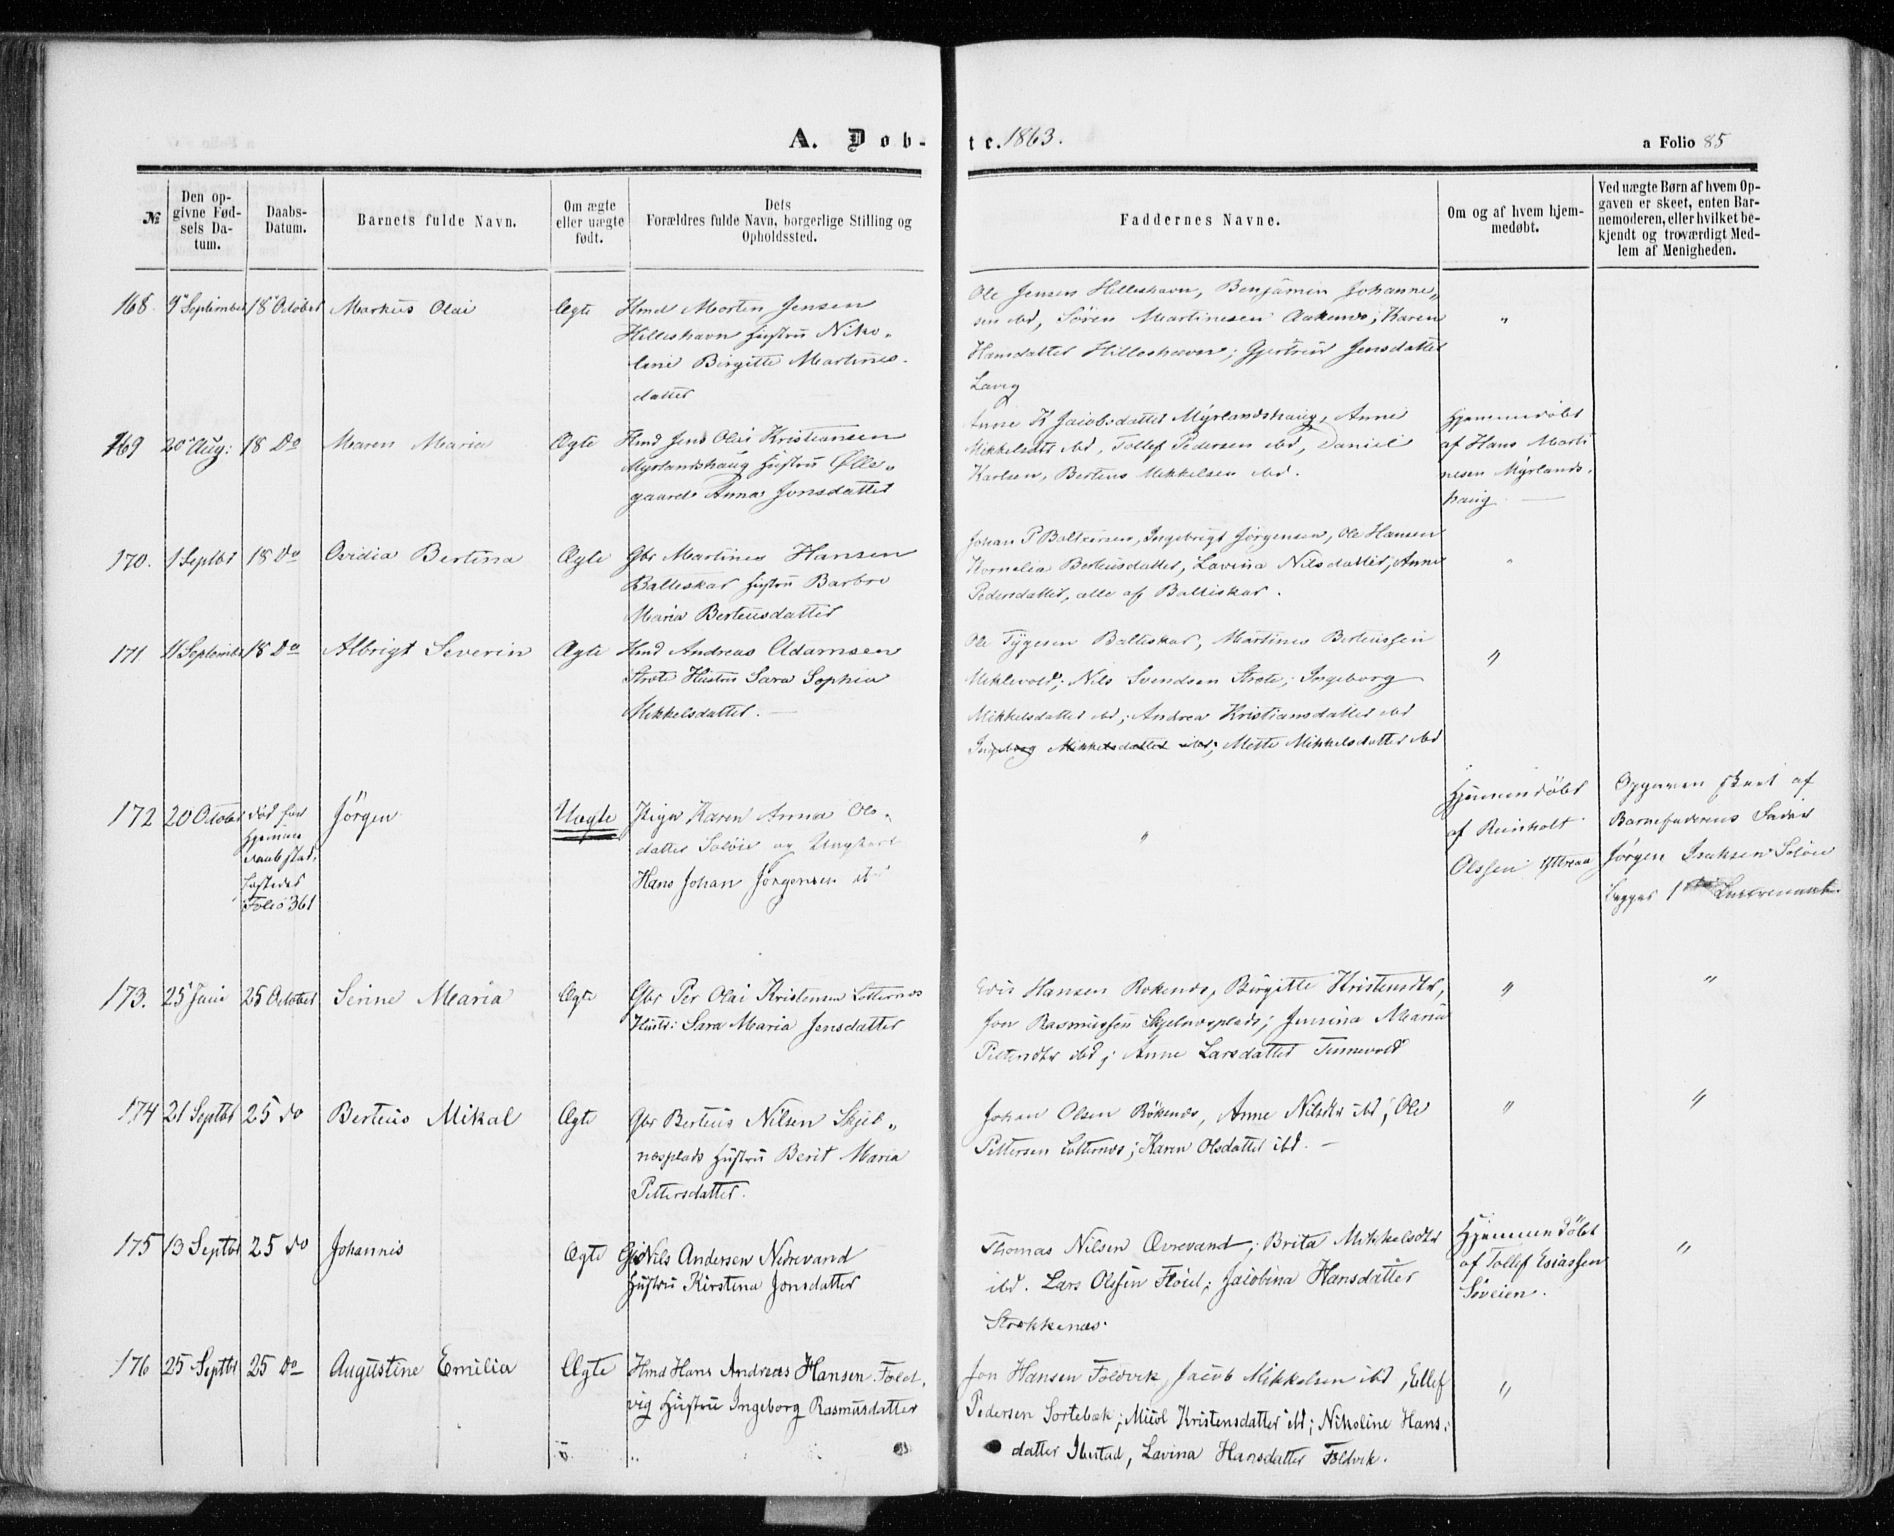 A. Døb-
te. 1863.
a Folio 85
№
Den op-
givne Fød-
sels Da-
tum.
Daabs-
Datum.
Barnets fulde Navn.
Om ægte
eller uægte
født.
Dets
Forældres fulde Navn, borgerlige Stilling og
Opholdssted.
Faddernes Navne.
Om og af hvem hjem-
medøbt.
Ved uægte Børn af hvem Op-
gaven er skeet, enten Bar-
nemoderen, eller hvilket be-
kjendt og troværdigt Med-
lem af Menigheden.
168. 9 September 18 October Markus Olai Ægte
Hmd Morten Jensen
Hilleshavn Hustru Niko-
line Birgitte Martines-
datter
Ole Jensen Hilleshavn, Benjamin Johanne-
sen ibd, Sören Martinesen Aakenes; Karen
Hansdatter Hilleshavn; Gjertrud Jensdatter
Lavig
"
169 20 Aug: 18 Do Maren Maria Ægte
Hmd Jens Olai Kristiansen
Myrlandshaug Hustru Ølle-
gaard Anna Jonsdatter
Anne K Jacobsdatter Myrlandshaug, Anne
Mikkelsdtr ibd, Tollef Pedersen ibd, Daniel
Karlsen, Berteus Mikkelsen ibd.
Hjemmedöbt
af Hans Marti
nesen Myrlands-
haug
170. 1 Septbr 18 Do Ovidia Bertina Ægte
Gbr Martines Hansen
Balteskar Hustru Barbro
Maria Berteusdatter
Johan P Baltersen, Ingebrigt Jörgensen, Ole Hansen
Kornelia Berteusdatter, Lavina Nilsdatter, Anne
Pedersdatter, alle af Balteskar.
"
171 11 September 18 Do Albrigt Severin Ægte
Hmd Andreas Adamsen
Strøte Hustru Sara Sophia
Mikkelsdatter.
Ole Tygesen Balteskar, Martines Berteussen
Miklevold; Nils Svendsen Strøte; Ingeborg
Mikkelsdatter ibd; Andrea Kristiansdatter ibd
Ingeborg Mikkelsdatter ibd; Mette Mikkelsdatter ibd
"
172 20 October
död för
Hjemme
daab stad-
fæstedes
Folio 361
Jörgen
Uægte
Pige Karen Anna Ols-
datter Solöie og Ungkarl
Hans Johan Jörgensen
"
Hjemmedöbt
af Reinholt
Olssen Yttreaa
Opgaven skeet af
Barnefaderens Fader
Jörgen Isaksen Solöie
begges 1ste Leiermaal.
173. 25 Juni 25 October Serine Maria Ægte
Gbr Per Olai Kristensen Lotternes
Hustr: Sara Maria Jensdatter
Hansen Rokenes, Birgitte Kristensdtr,
Jon Rasmussen Skjelnesplads; Jensina Maria
Pettersdtr ibd; Anne Larsdatter Tennevold
"
"
174 21 Septbr 25 do Berteus Mikal Ægte
Gbr Berteus Nilsen Skjel-
nesplads Hustru Berit Maria
Pettersdatter.
Johan Olsen Rökenes, Anne Nilsdtr ibd; Ole
Pettersen Lotternes; Karen Olsdatter ibd.
"
"
175 13 Septbr 25 do Johannis Ægte
Gbr Nils Andersen Nedrevand
Hustru Kirstina Jonsdatter
Thomas Nilsen Øvrevand; Brita Mikkelsdtr
ibd. Lars Olssen Flöiel; Jacobina Hansdatter
Strokkenæs.
Hjemmedöbt
af Tollef Esiassen
Söveien.
"
176 25 Septbr 25 Do Augustine Emilia Ægte
Hmd Hans Andreas Hansen Fold-
vig Hustru Ingeborg Rasmusdatter
Jon Hansen Foldvik, Jacob Mikkelsen ibd, Ellef
Pedersen Sortebæk; Micol Kristensdatter ibd; Nikoline Hans-
datter Ibestad, Lavina Hansdatter Foldvik.
"